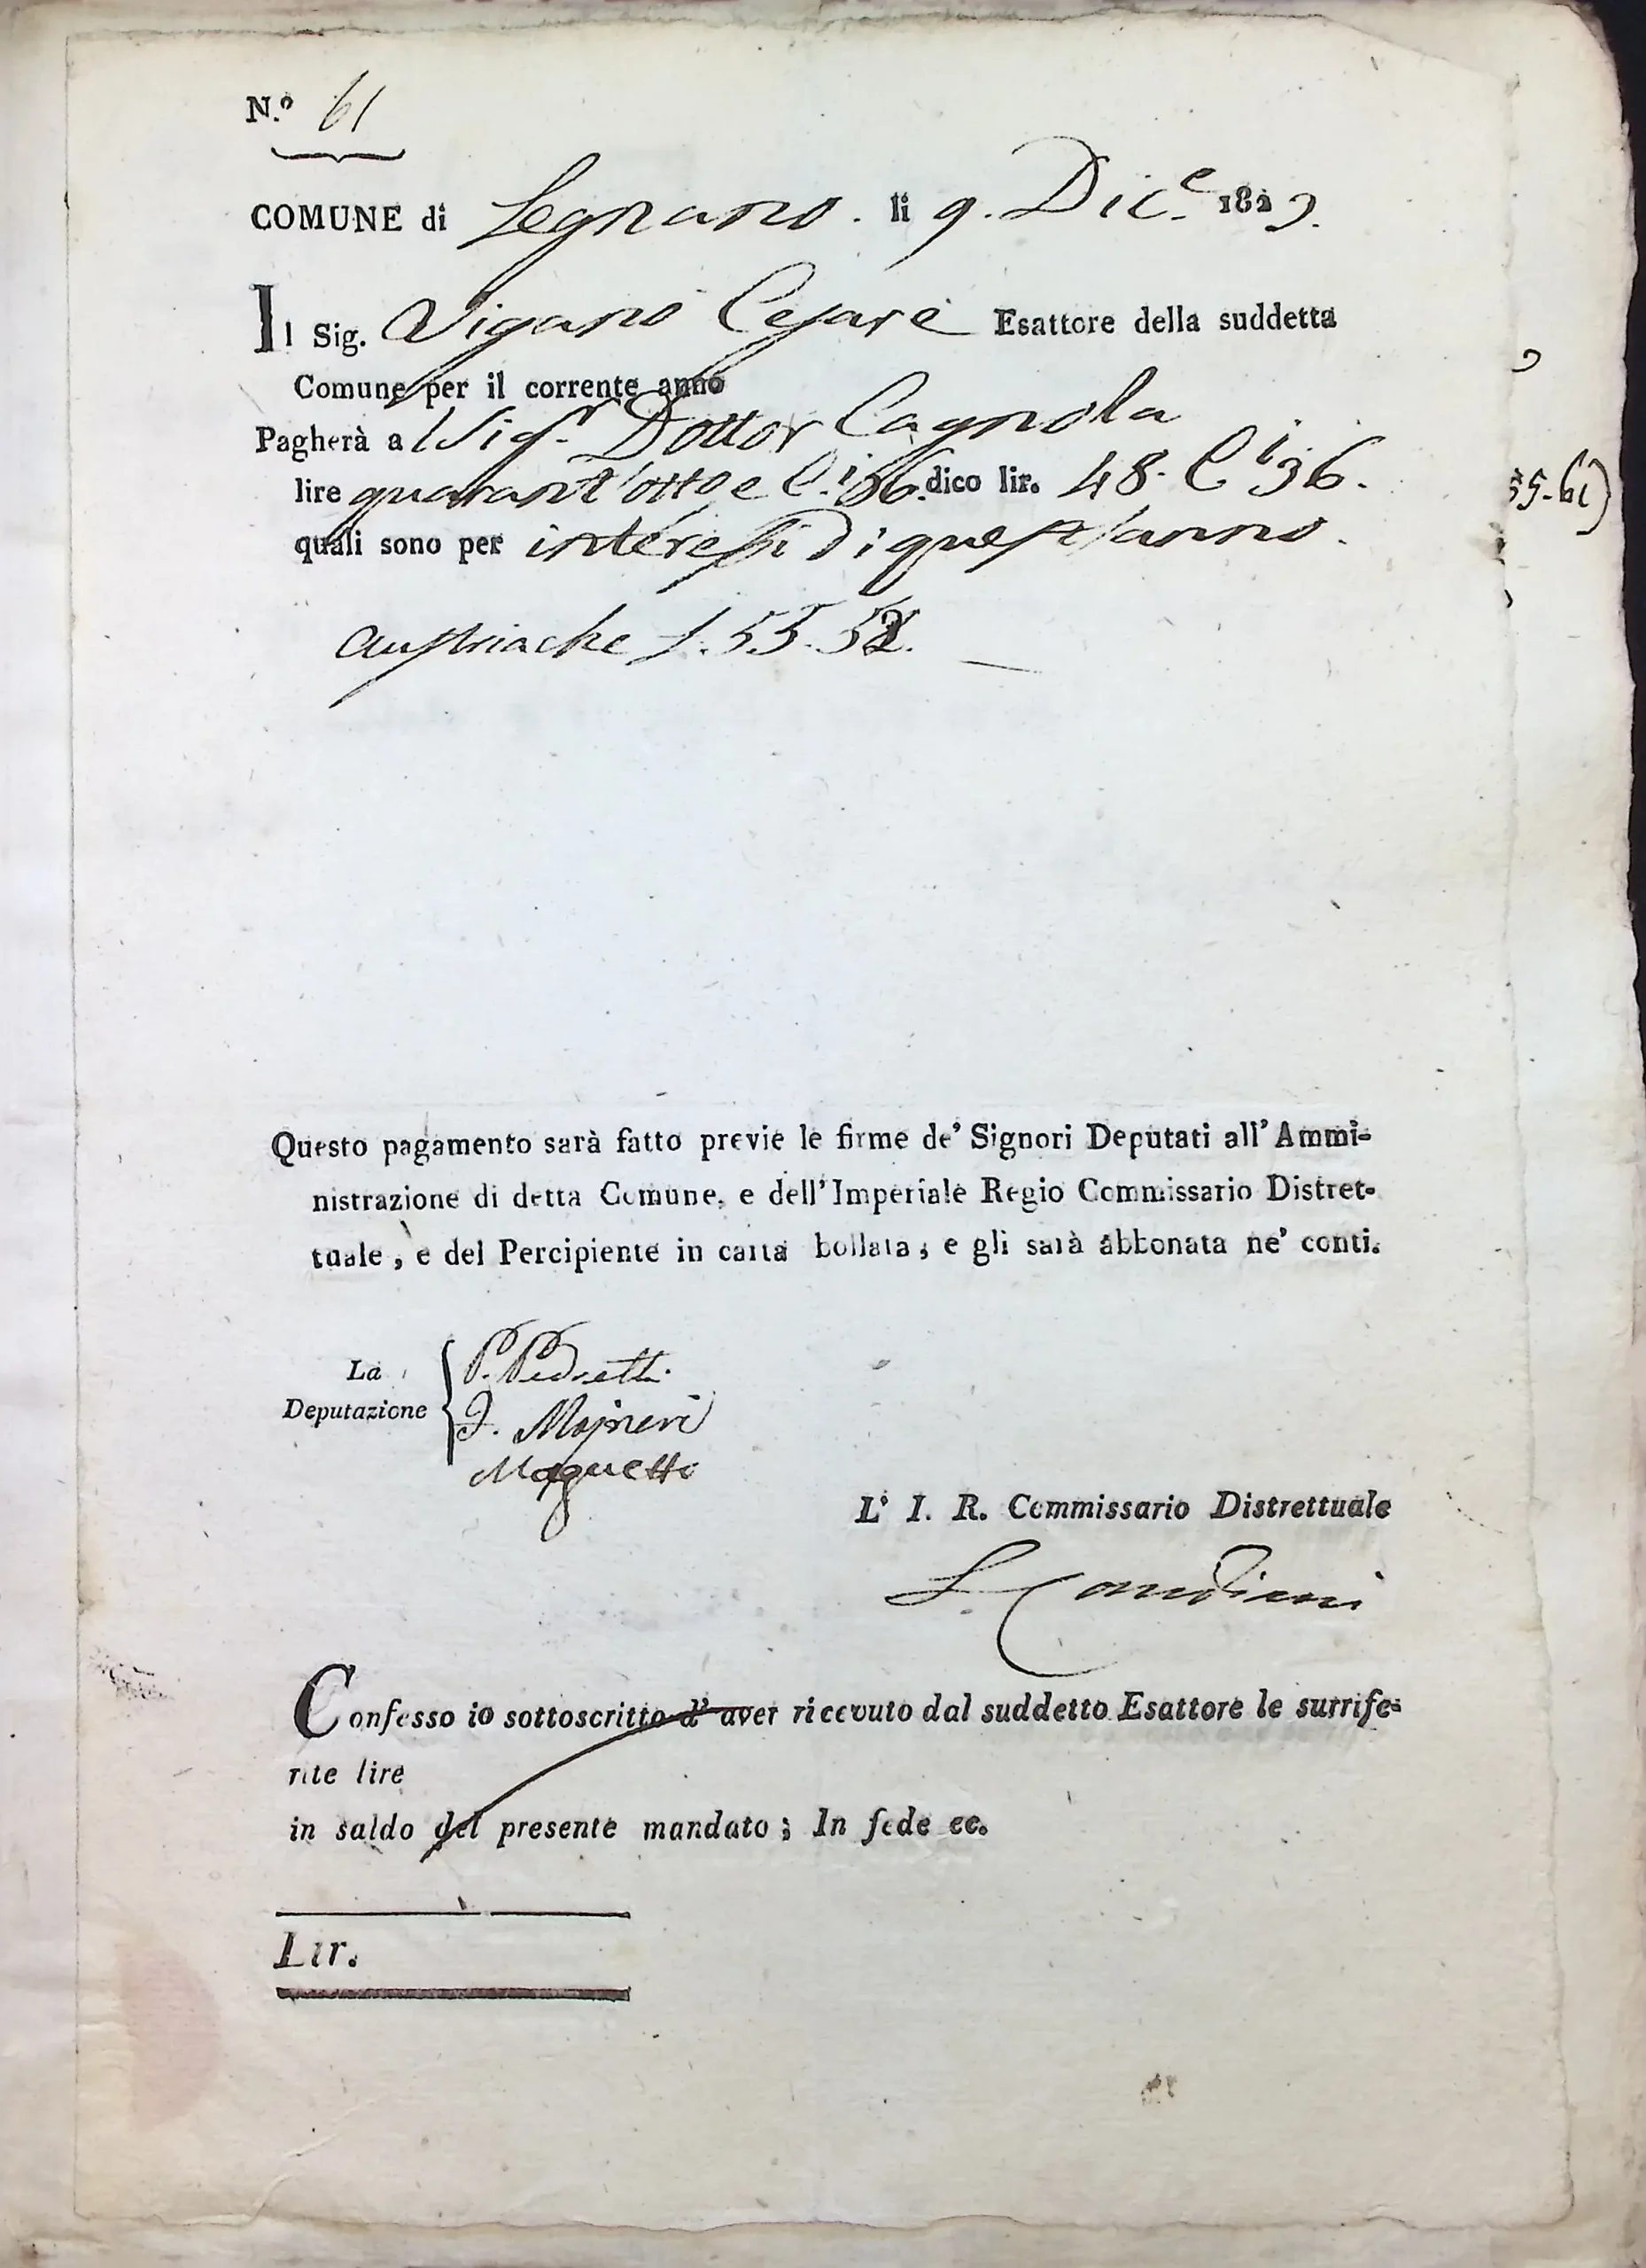 N.º 61
COMUNE di Legnano. li 9. Dic.e 1823.
Il Sig. Viganò Cesare Esattore della suddetta
Comune per il corrente anno
Pagherà al Sig.r Dottor Cagnola
lire quarant'otto e C.i 36. dico lir. 48. C.i 36.
quali sono per interessi di quest'anno.
austriache £. 55. 52.
55-61)
Questo pagamento sarà fatto previe le firme de' Signori Deputati all'Ammi-
nistrazione di detta Comune, e dell'Imperiale Regio Commissario Distret-
tuale, e del Percipiente in carta bollata; e gli sarà abbonata ne' conti.
La
Deputazione
P. Pedretti.
Mojneri
Magnetti
L' I. R. Commissario Distrettuale
Confesso io sottoscritto d' aver ricevuto dal suddetto Esattore le surrife-
rite lire
in saldo del presente mandato; In fede ec.
Lir.